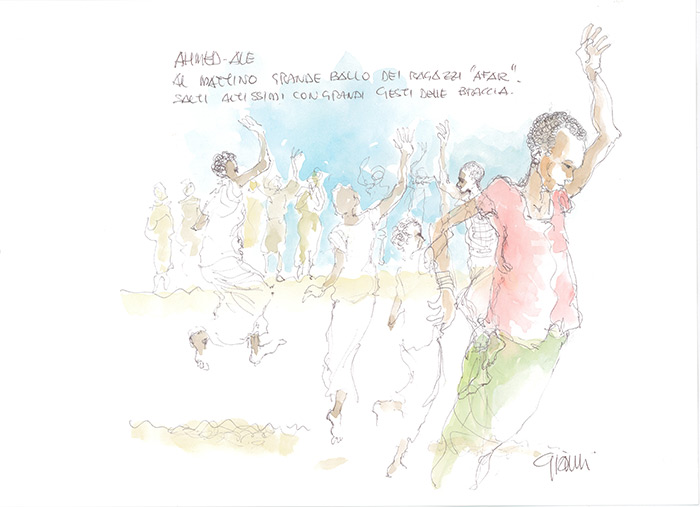 AHMED-ALE
AL MATTINO GRANDE BALLO DEI RAGAZZI "AFAR".
SALTI ALTISSIMI CON GRANDI GESTI DELLE BRACCIA.
Gianni